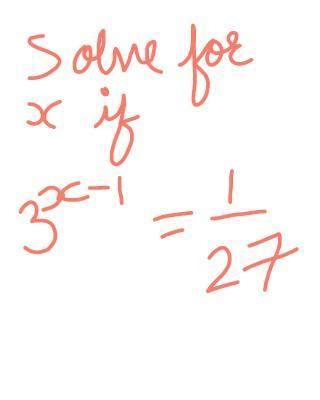 Solve for
x if
3^{x-1} = \frac{1}{27}